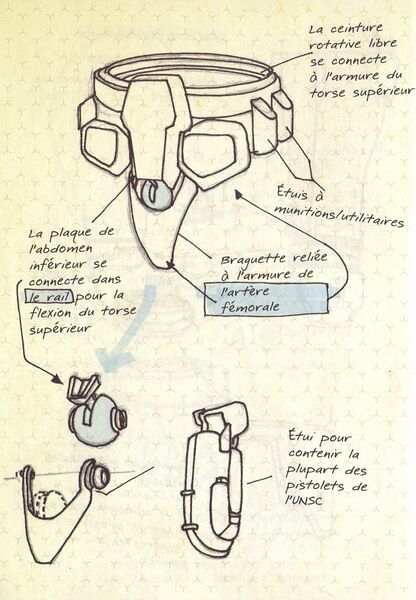 La ceinture
rotative libre
se connecte
à l'armure du
torse supérieur
Étuis à
munitions/utilitaires
La plaque de
l'abdomen
inférieur se
connecte dans
le rail pour la
flexion du torse
supérieur
Braguette reliée
à l'armure de
l'artère
fémorale
Étui pour
contenir la
plupart des
pistolets de
l'UNSC